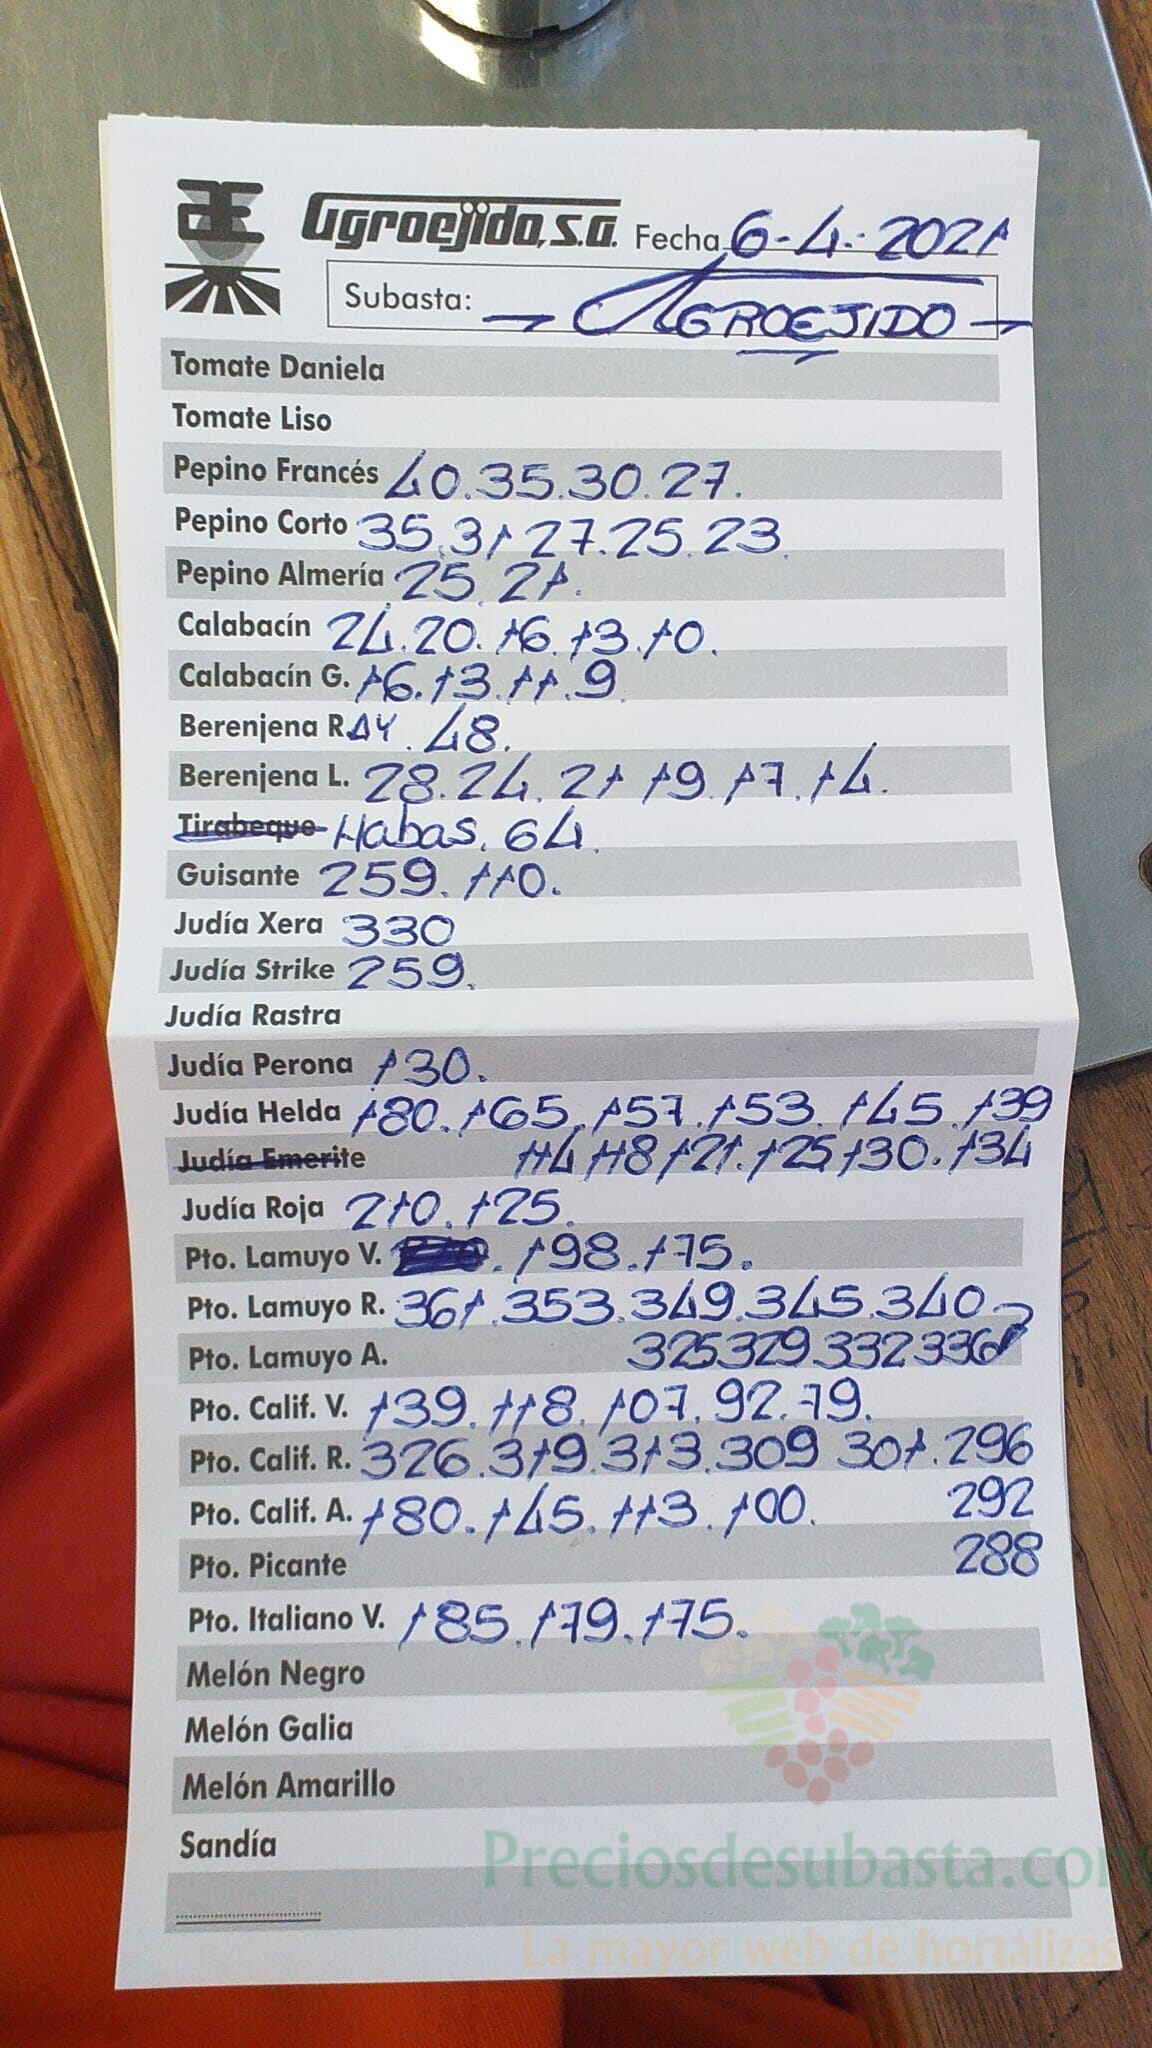 Œ Agroejido, S.A. Fecha 6-4-2021
Subasta: AGROEJIDO
Tomate Daniela
Tomate Liso
Pepino Francés 40.35.30.27.
Pepino Corto 35.31 27.25.23.
Pepino Almería 25.21.
Calabacín 24.20.16.13.10.
Calabacín G. 16.13.11.9.
Berenjena RAY. 48.
Berenjena L. 28.24.21 19.17.14.
Tirabeque Habas. 64.
Guisante 259.110.
Judía Xera 330
Judía Strike 259.
Judía Rastra
Judía Perona 130.
Judía Helda 180.165.157.153.145.139
Judía Emerite 114 118 121.125 130.134
Judía Roja 210.125.
Pto. Lamuyo V. .198.175.
Pto. Lamuyo R. 361.353.349.345.340
Pto. Lamuyo A. 325 329 332 336
Pto. Calif. V. 139.118.107.92.79.
Pto. Calif. R. 326.319.313.309 301.296
Pto. Calif. A. 180.145.113.100. 292
Pto. Picante 288
Pto. Italiano V. 185.179.175.
Melón Negro
Melón Galia
Melón Amarillo
Sandía
Preciosdesubasta.com
La mayor web de hortalizas